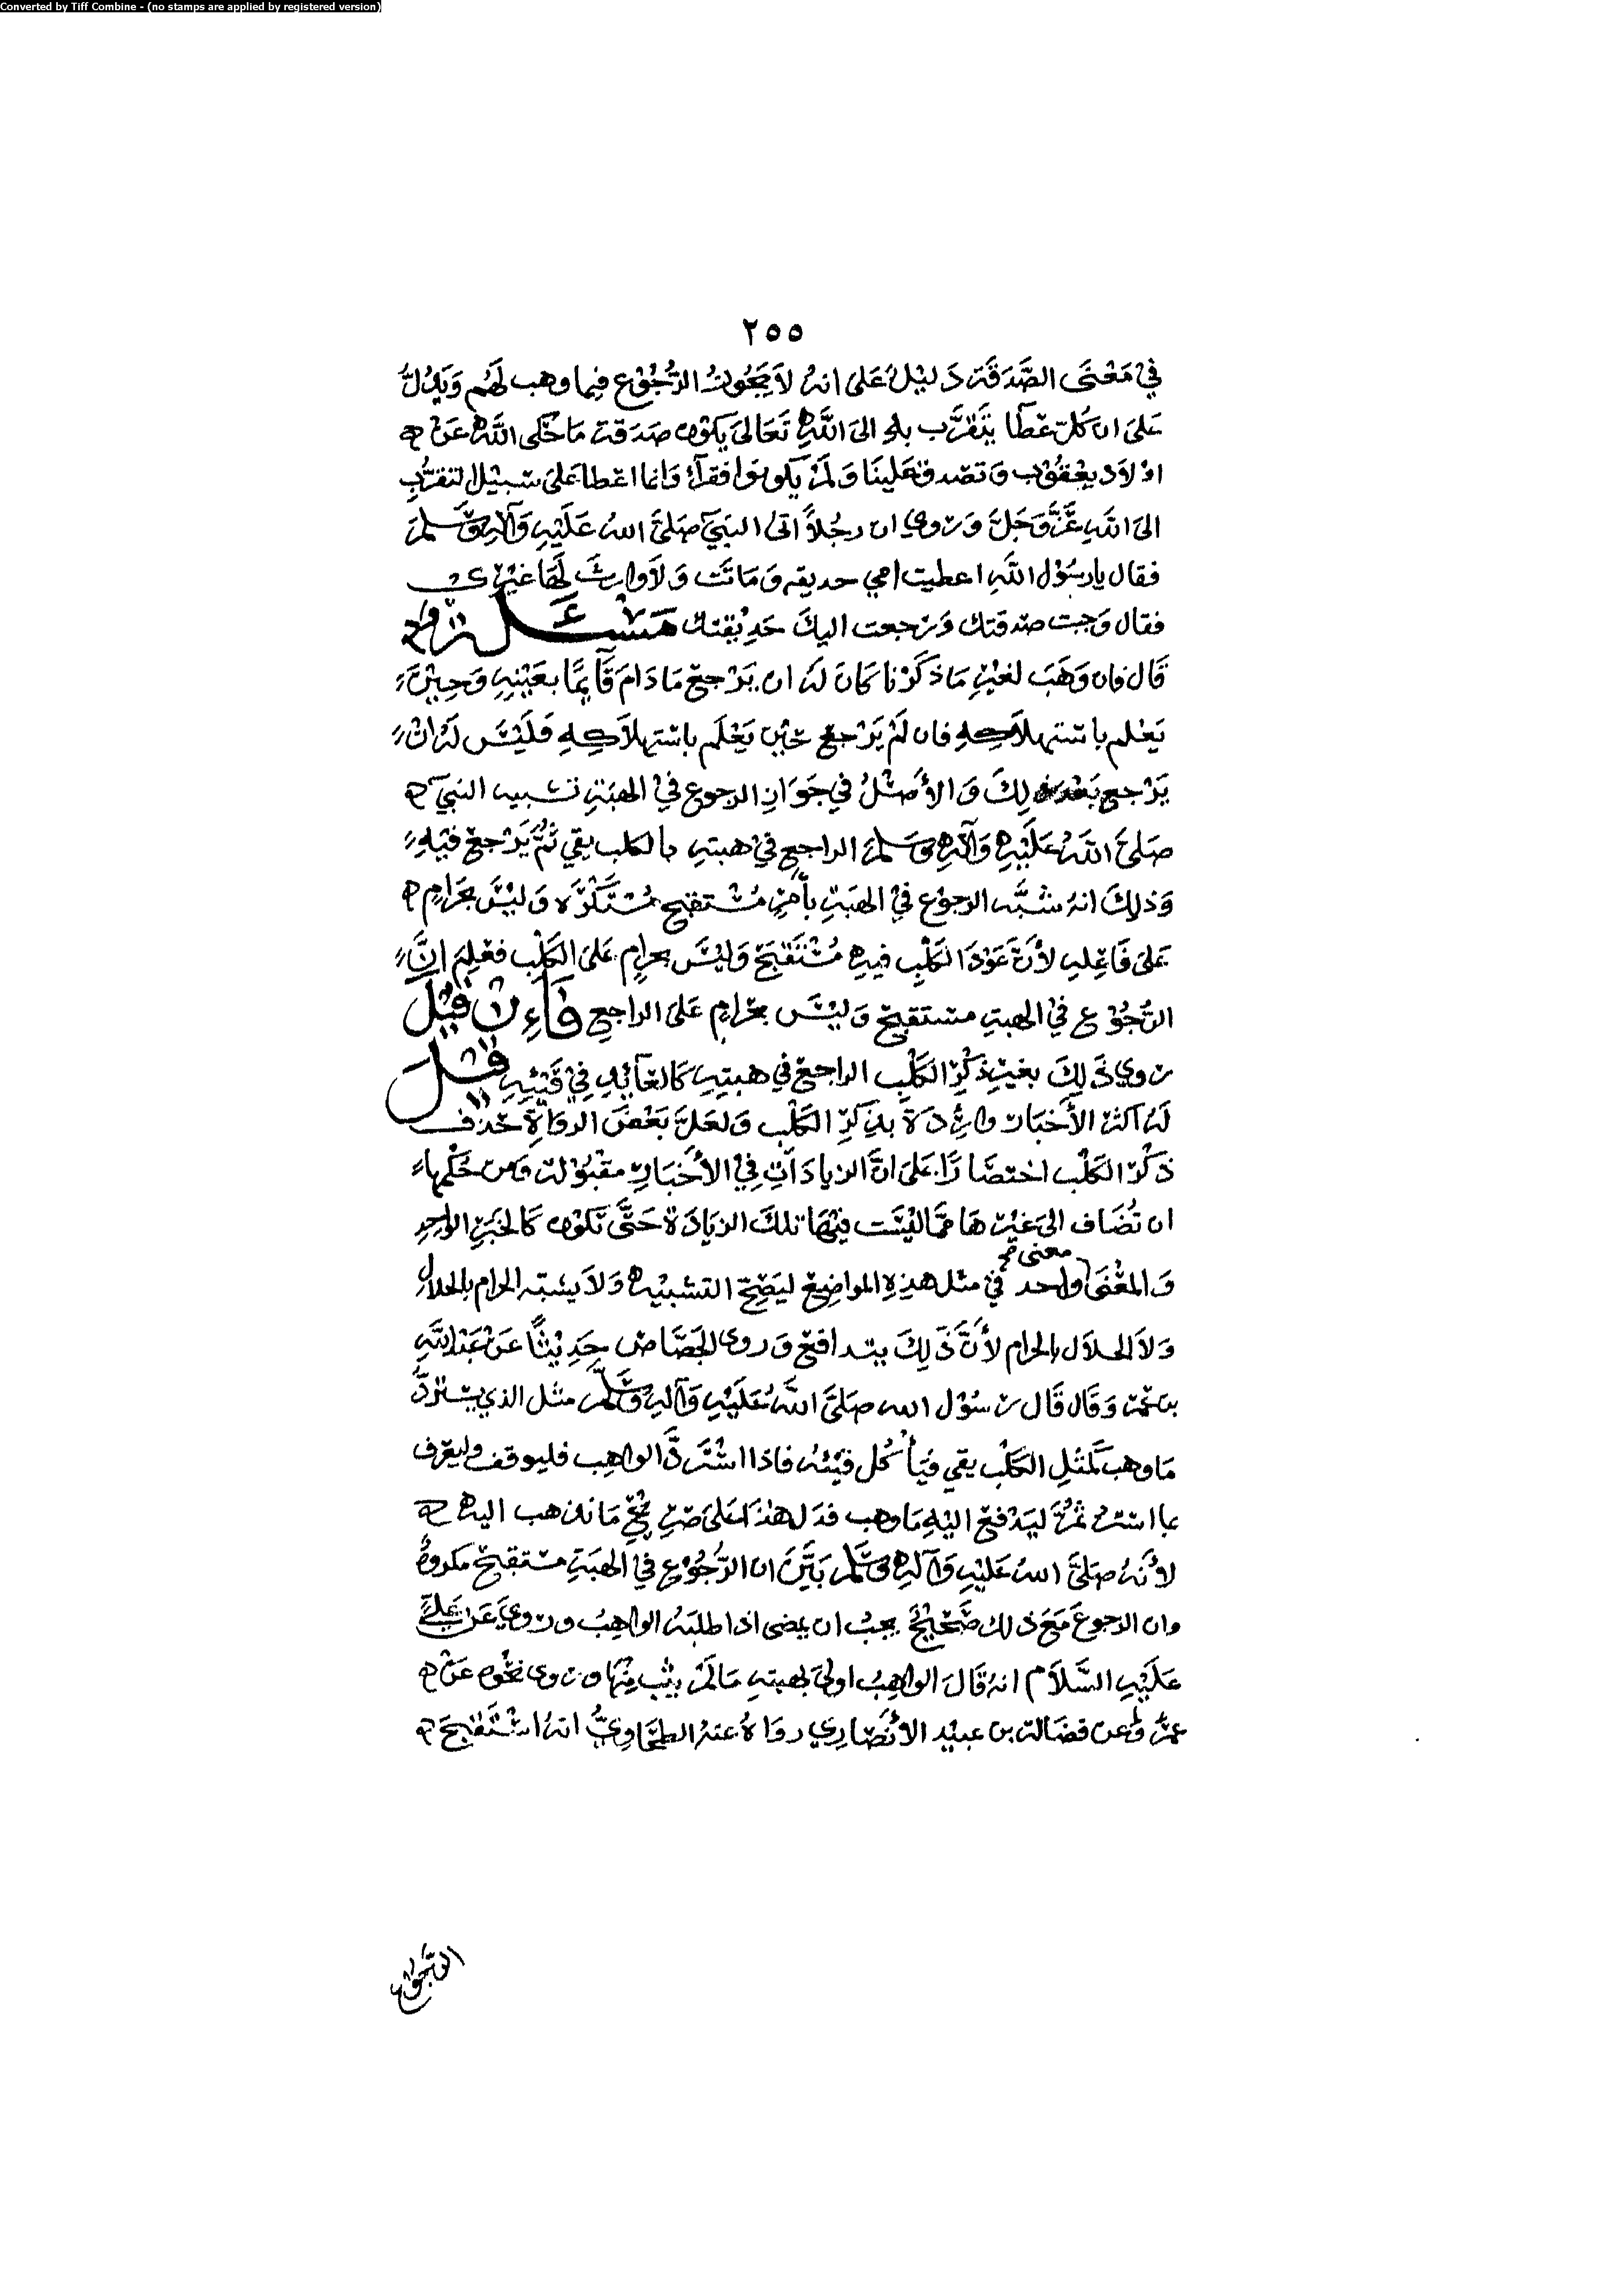 Converted by Tiff Combine - (no stamps are applied by registered version)
٢٥٥
في مَعْنَى الصَّدَقَة دَليْلٌ عَلى انهُ لاَ يَجُوزُ الرُّجُوْع فِيما وهب لَهُم وَيَدُلُّ
عَلىَ ان كلّ عَطا يتَقَرَّب بهِ الىَ اللَّهِ تَعَالىَ يَكوْن صَدَقة مَا حَكى اللَّهُ عَنْ
اوْلاَد يعْقوْب وَتصَدق عَلينَا وَلَمْ يكونوَا فقرآءَ وَانما اعْطا عَلىَ سَبيْل التقرُّبِ
الىَ اللَّهِ عَزَّ وَجَلَّ وَروِي ان رجُلاً اتىَ النبَيّ صَلىَّ اللهُ عَلَيْهِ وَآلهِ وَسَلمَ
فقال يا رسُوْل اللَّهِ اعطيت امي حديقه وَمَاتَت وَلاَوارثَ لَهَا غيْرِي
فقال وَجبت صَدقتك وَرَجعت اليكَ حَدِيْقتك مَسْئَلة
قَال فان وَهَبَ لغيْرِ مَا ذكَرْنا كَانَ لهُ ان يَرْجعَ مَا دَامَ قَآيمًا بعَيْنهِ وَحِيْنَ
يَعْلم باسْتهلاَكهِ فان لَمْ يَرْجعْ حيْن يَعْلَم باسْتهلاَكِهِ فَليْسَ لهُ انْ
يَرْجعَ بَعْد ذلِكَ وَالأَصْلُ في جَوَازِ الرجوع فيْ الهبَةِ تشبيه النبيّ
صَلىَ اللَّهُ عَلَيْهِ وَآلهِ وَسَلمَ الراجع فيْ هبتهِ بالكلب يقي ثمُّ يَرْجعْ فيْهِ
وَذلِكَ انهُ شبَّه الرجوْع فيْ الهبَةِ بأمْرٍ مُسْتقبح مُسْتَكْرَه وَليْسَ بحَرَامٍ
عَلىَ فَاعِلهِ لأَنَّ عَوْدَ الكَلْبِ فيهِ مُسْتَقبَح وَليْسَ بحرامٍ عَلىَ الكَلْبِ فعُلِمَ انَّ
الرُّجُوْع فيْ الهبةِ مستقبح وَليْسَ بحَرامٍ عَلىَ الراجع فَاءِن قيْلَ
روِي ذَلِكَ بغيْر ذكْرِ الكَلْبِ الراجعْ في هبتِهِ كَالعَآيدِ فيْ قَيْئِهِ قيْلَ
لَهُ اكثر الأَخبَار وارِدَة بذِكرِ الكَلْبِ وَلعَلَّ بَعْضَ الروَاةِ حَذف
ذكْرَ الكَلْبِ اختصَارًا عَلىَ انَّ الزيادَاتِ فيْ الأَخبَارِ مقبُوْلة وَمن حُكمِهَا
ان تُضَاف الىَ غيْرهَا مِمَّا ليْسَت فيْهَا تلكَ الزيَادَة حَتَّى تكوْن كَالخبَرِ الواحِدِ
معنى
وَالمعْنَى واحد في مثل هذِهِ المواضِعْ ليَصِحّ التشبيْه وَلاَ يشبّه الحرام بالحلال
وَلاَ الحلاَل بالحرام لأَنَّ ذَلِكَ يتدافعْ وَروى الجَصَّاص حَدِيْثًا عَنْ عَبْد اللَّهِ
بن عمر وَقال قَال رسُوْل الله صَلىَّ اللَّهُ عَلَيْهِ وَآلهِ وَسَلم مثل الذي يستردُّ
مَا وهب كَمَثلِ الكَلْبِ يقي فيَأكُل قيْئهُ فاذا اسْتَرَدَّ الواهِب فليوقف وليعَرف
بما استرد ثمَّ ليَدْفعْ اليْهِ مَا وهب فدَل هَذَا عَلىَ صَرِيْحِ مَا نذهب اليه
لأَنهُ صَلىَّ اللهُ عَليْهِ وَآلهِ وَسَلم بَيَّنَ ان الرُّجُوْع في الهبَةِ مسْتقبح مكروهٌ
وان الرجوعَ مَعَ ذلك صَحِيْح يجبُ ان يمضى اذا طلبَهُ الواهِبُ وروِيَ عَن عَليٍّ
عَلَيْهِ السَّلاَم انهُ قَالَ الواهِبُ اولىَ بهبتهِ مَا لَمْ يثب مِنْهَا وروى نَحْوه عَنْ
عمَر وَعن فضَالة بن عبيْد الأَنصَارِي رواهُ عنهُ الطحَّاوِيُّ انهُ اسْتَقبَحَ
الرجوع